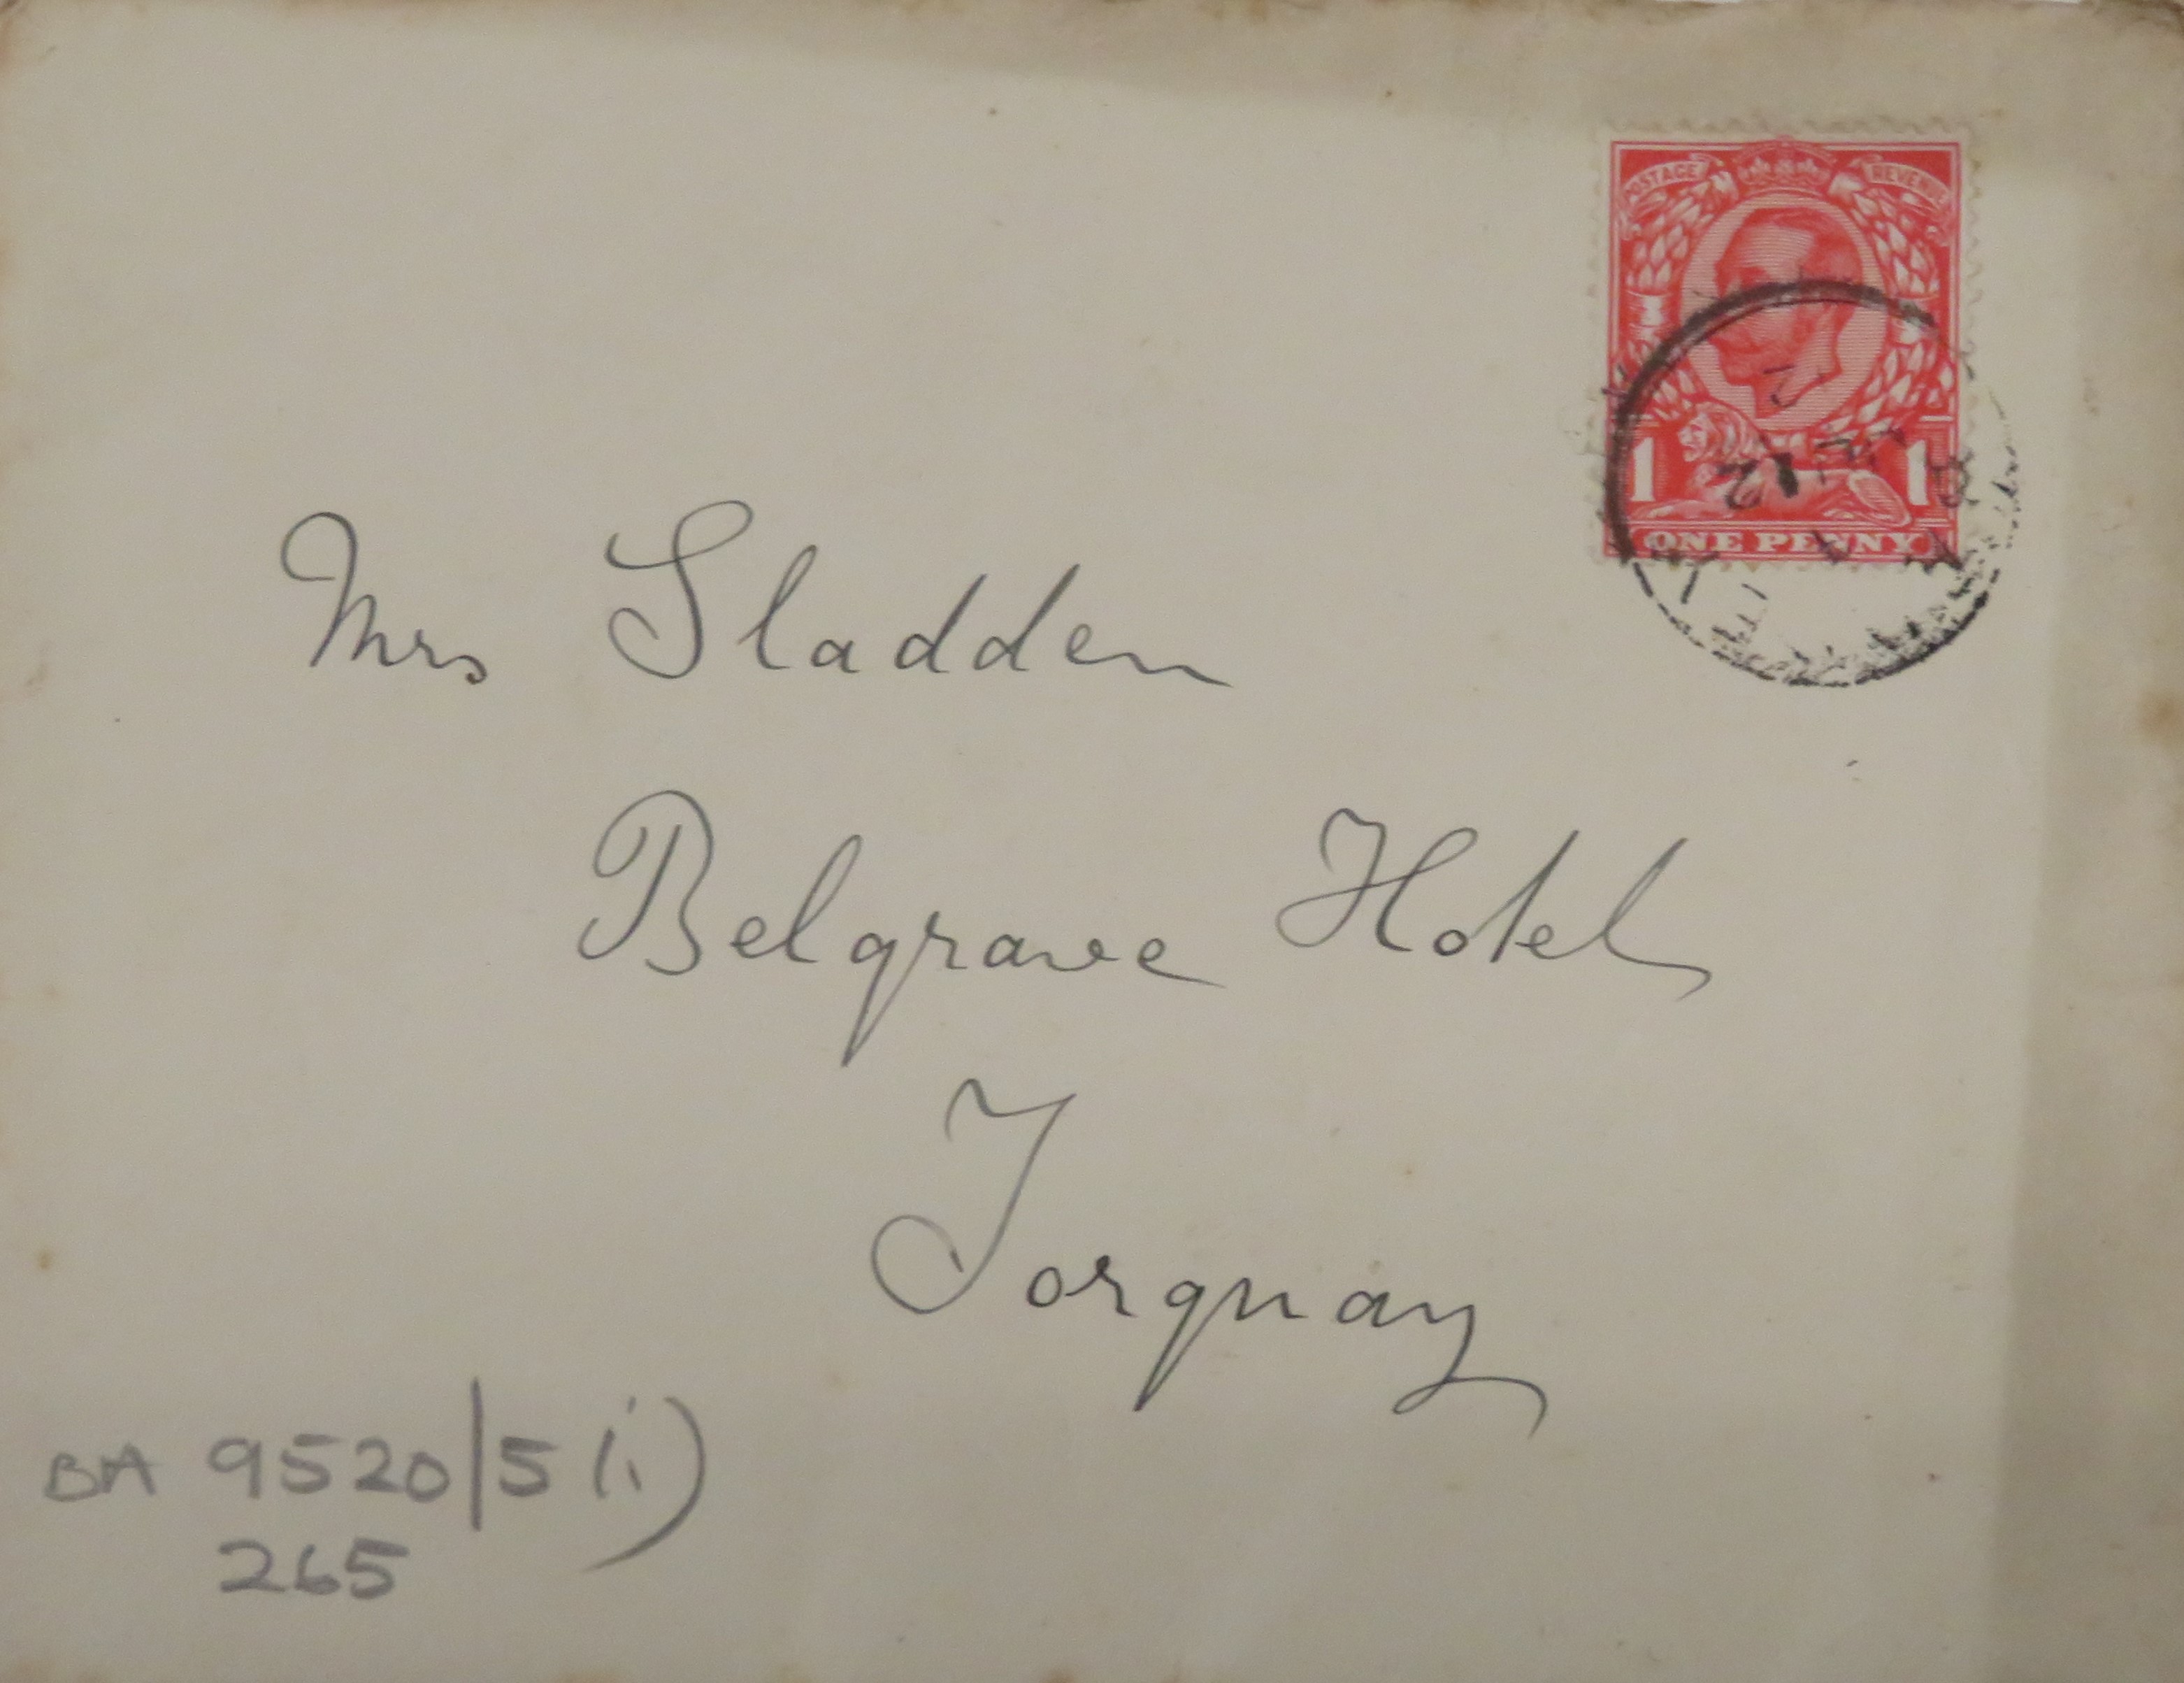 POSTAGE REVENUE
1 1
ONE PENNY
12
Mrs Sladden
Belgrave Hotel
Torquay
BA 9520/5 (i)
265